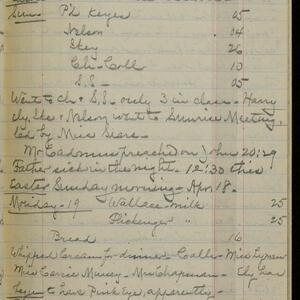 Sun. Ph Keyes 05
Nelson 04
Ikey 26
Ch-Coll 10
S.S.- 05
Went to Ch & S.S.- only 3 in class - Harry
Ily, Ike & Nelson went to Sunrise Meeting,
led by Miss Sears.
Mr Cadmus preached on John 20:29
Father sick in the night. 12:30 this
Easter Sunday morning - Apr 18.
Monday - 19 Wallace - milk 25
Flickenger " 25
Bread 16
Whipped Cream for dinner - Calls - Miss Lyman
Miss Carrie Muncy - Mrs Chapman -
begun to have Pink Eye, apparently -